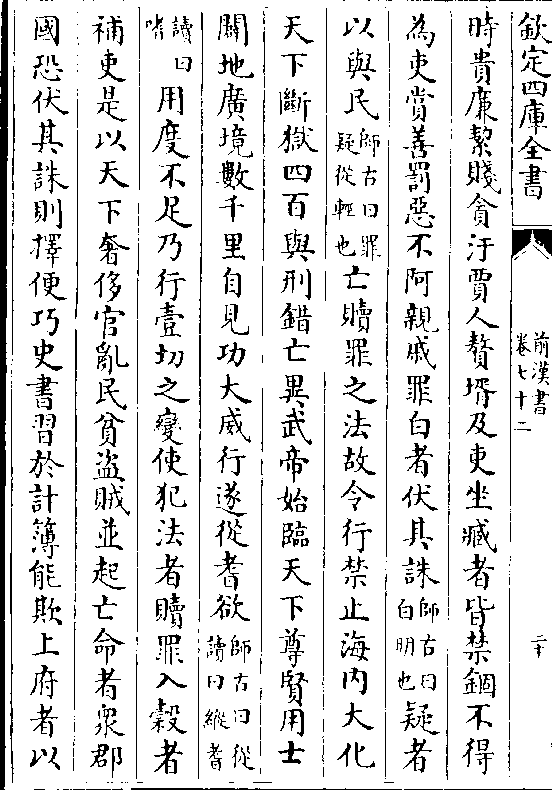 欽定四庫全書
前漢書
卷七十二
二十
時貴廉絜賤貪汙賈人贅壻及吏坐臧者皆禁錮不得
為吏賞善罰惡不阿親戚罪白者伏其誅師古曰白明也疑者
以與民師古曰罪疑從輕也亡贖罪之法故令行禁止海内大化
天下斷獄四百與刑錯亡異武帝始臨天下尊賢用士
闢地廣境數千里自見功大威行遂從耆欲師古曰從讀曰縱耆
讀曰嗜用度不足乃行壹切之變使犯法者贖罪入穀者
補吏是以天下奢侈官亂民貧盗賊並起亡命者衆郡
國恐伏其誅則擇便巧史書習於計簿能欺上府者以